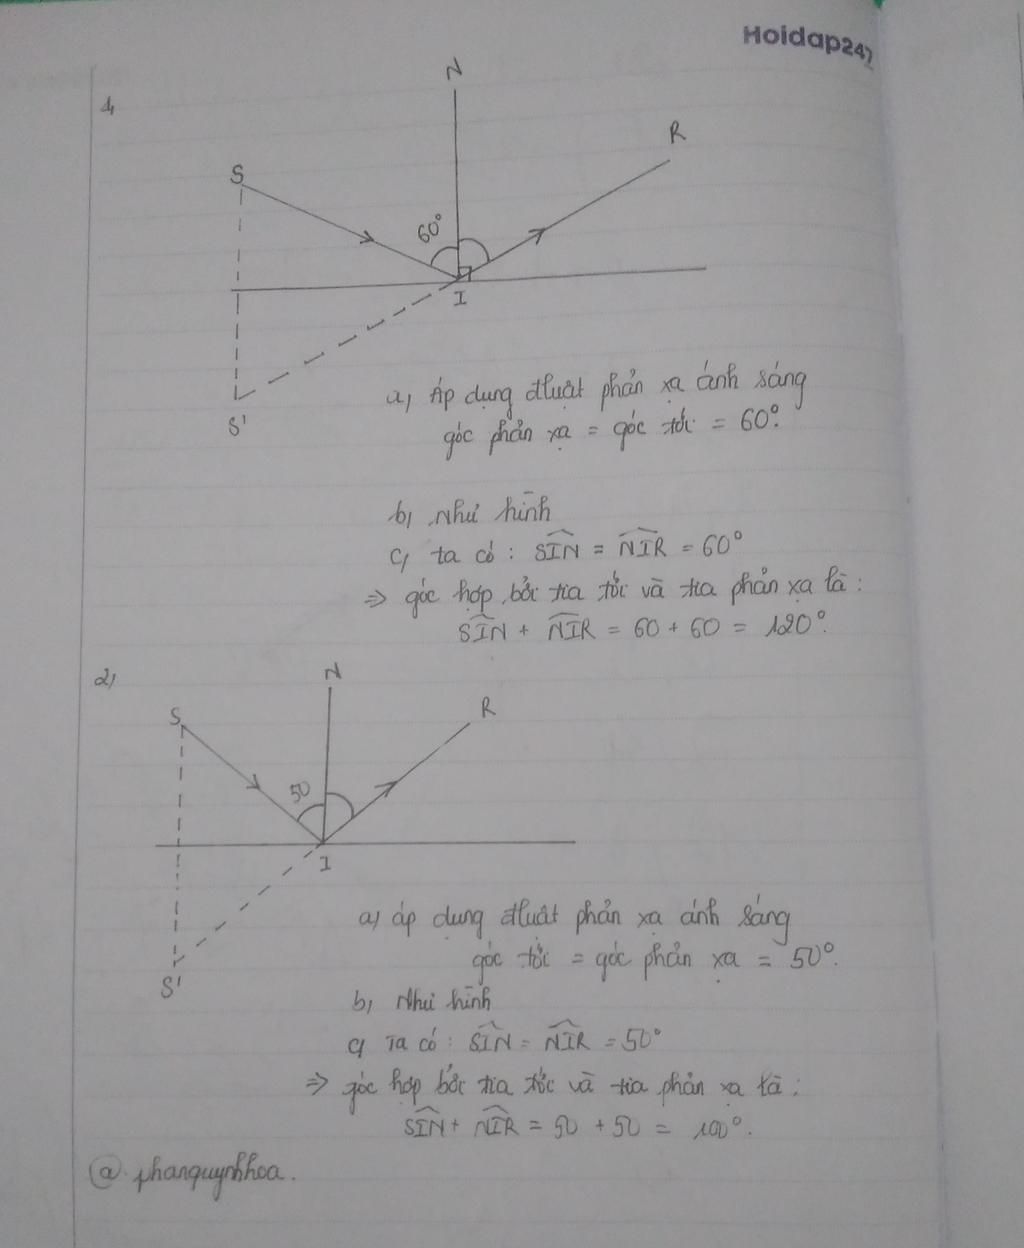 Hoidap247
1,
N
R
S
60°
I
S'
a, Áp dụng đluật phản xạ ánh sáng
góc phản xạ = góc tới = 60°.
b, Như hình
c, ta có : SIN = NIR = 60°
=> góc hợp bởi tia tới và tia phản xạ là :
SIN + NIR = 60 + 60 = 120°.
2,
N
S
R
50
I
S'
a, áp dụng đluật phản xạ ánh sáng
góc tới = góc phản xạ = 50°.
b, Như hình
c, Ta có : SIN = NIR = 50°
=> góc hợp bởi tia tới và tia phản xạ là :
SIN + NIR = 50 + 50 = 100°.
@ phanquynhhoa.